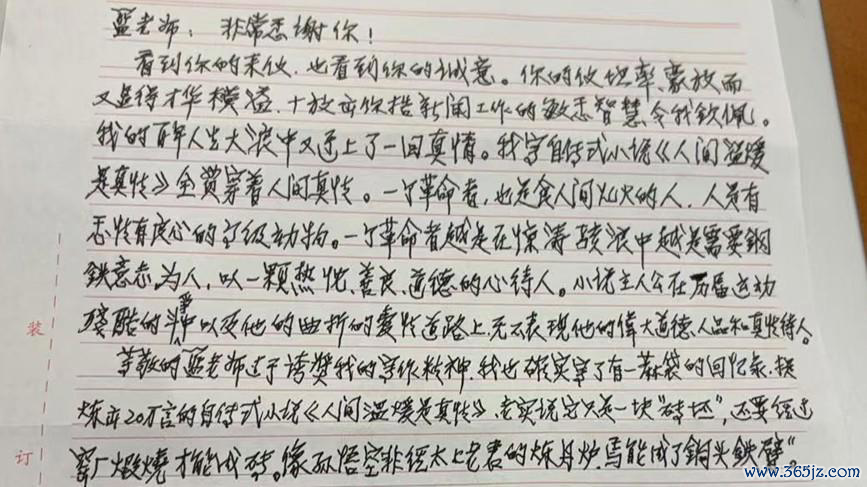 蓝老师：非常感谢你！
看到你的来伩，也看到你的诚意。你的伩坦率、豪放而
又显得才华横溢，十放出你搞新闻工作的敏志智慧，令我钦佩。
我的百年人生大浪中又逢上了一回真情。我写自传式小说《人间溫煖
是真情》全贯穿着人间真情。一个革命者，也是食人间烟火的人，人是有
感情有良心的高级动物。一个革命者越是在惊涛骇浪中越是需要鋼
鉄意志，为人，以一颗热忱、善良、道德的心待人。小说主人公在历届运动
残酷的斗争中以及他的曲折的愛情道路上，无不表现他的偉大道德、人品和真情待人。
尊敬的蓝老师过于誇奬我的写作精神，我也确实写了有一蔴袋的回忆录，提
炼出20万言的自传式小说《人间溫煖是真情》，老实说它只是一块"砖坯"，还要经过
窑厂煅燒才能成砖。像孫悟空非经太上老君的炼丹炉，焉能成了鋼头鉄臂"。
装
订
www.365jz.com